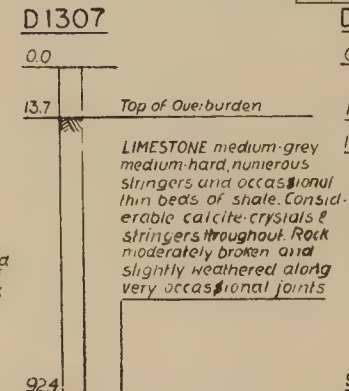 D1307
0.0
13.7 Top of Overburden
LIMESTONE medium-grey
medium-hard, numerous
stringers and occassional
thin beds of shale. Consid-
erable calcite-crystals &
stringers throughout. Rock
moderately broken and
slightly weathered along
very occassional joints
92.4